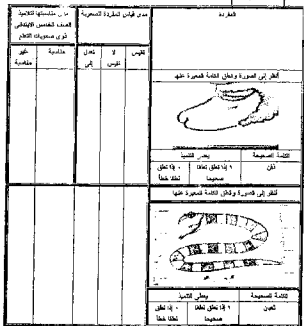 المفردة
مدى قياس المفردة للصعوبة
مدى مناسبتها لتلاميذ الصف الخامس الابتدائى ذوى صعوبات التعلم
تقيس
لا تقيس
تعدل إلى
مناسبة
غير مناسبة
أنظر إلى الصورة وانطق الكلمة المعبرة عنها
الكلمة الصحيحة
يعطى التلميذ
ذقن
١ إذا نطق نطقا صحيحا
٠ إذا نطق نطقا خطأ
أنظر إلى الصورة وانطق الكلمة المعبرة عنها
الكلمة الصحيحة
يعطى التلميذ
ثعبان
١ إذا نطق نطقا صحيحا
٠ إذا نطق نطقا خطأ